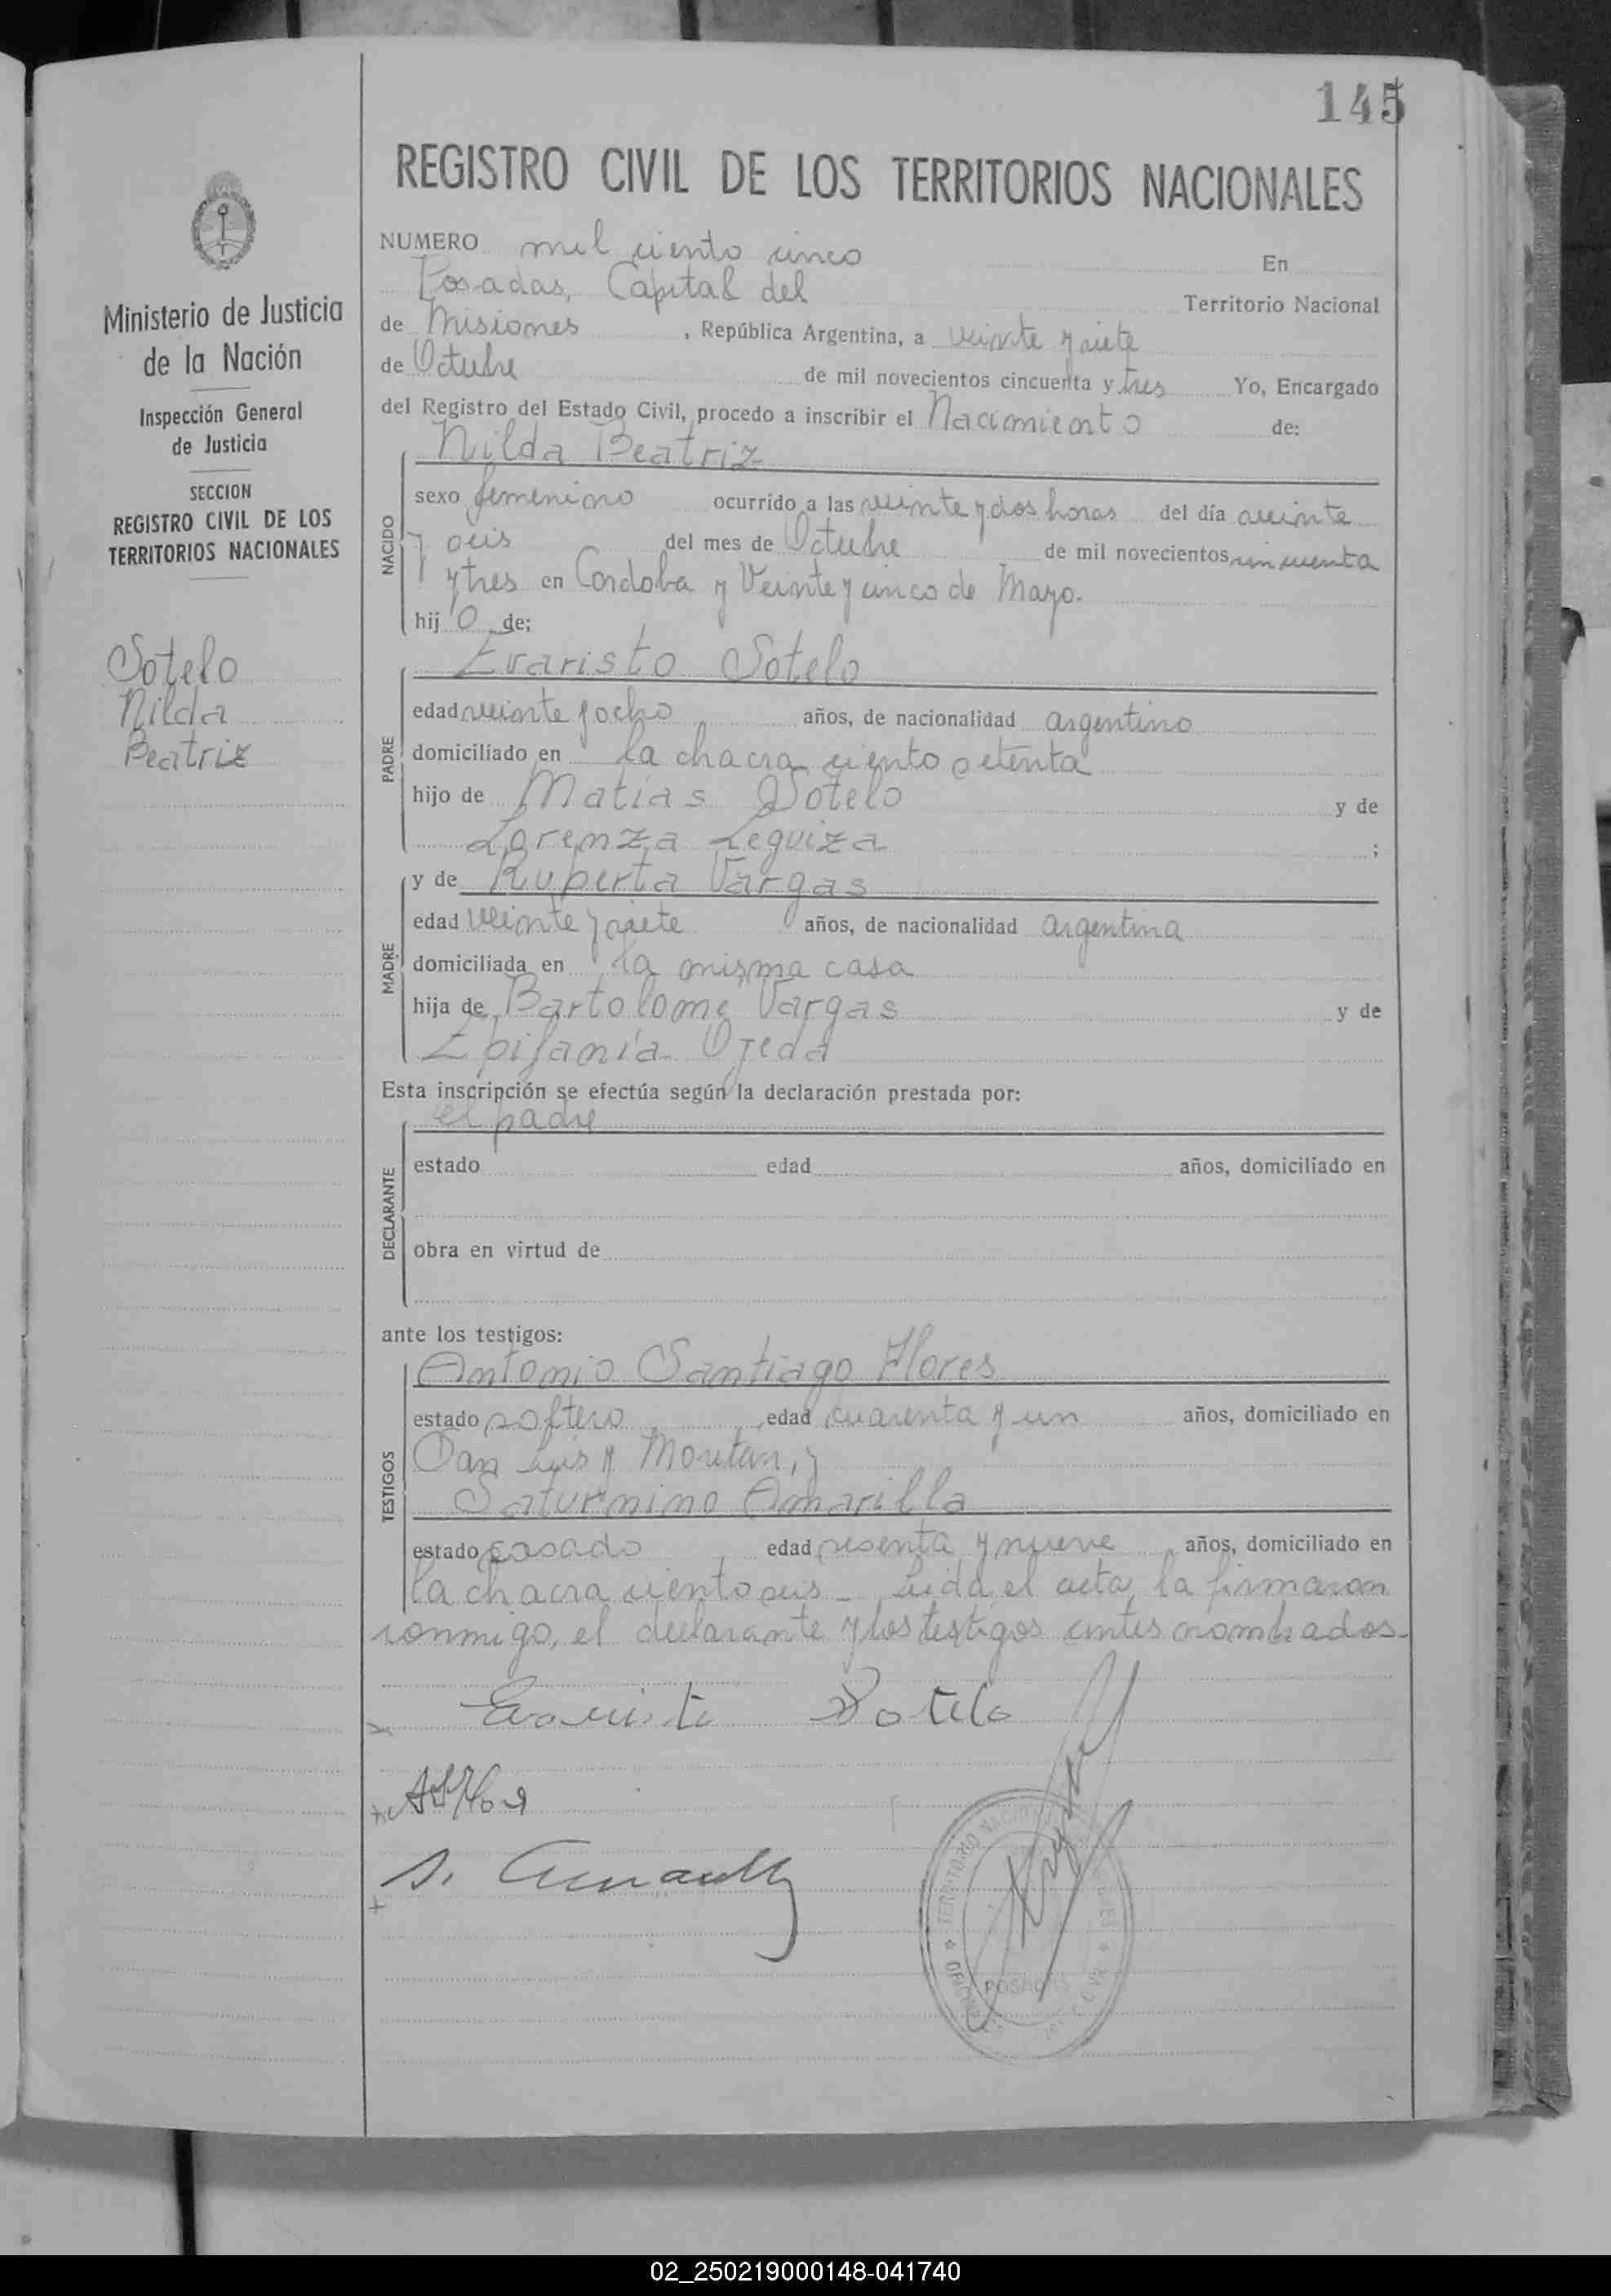 145
REGISTRO CIVIL DE LOS TERRITORIOS NACIONALES
Ministerio de Justicia
de la Nación
Inspección General
de Justicia
SECCION
REGISTRO CIVIL DE LOS
TERRITORIOS NACIONALES
Sotelo
Nilda
Beatriz
NUMERO mil ciento cinco En
Posadas, Capital del Territorio Nacional
de Misiones , República Argentina, a veinte y siete
de Octubre de mil novecientos cincuenta y tres Yo, Encargado
del Registro del Estado Civil, procedo a inscribir el Nacimiento de:
Nilda Beatriz
NACIDO
sexo femenino ocurrido a las veinte y dos horas del día veinte
y seis del mes de Octubre de mil novecientos cincuenta
y tres en Cordoba y Veinte y cinco de Mayo.
hij o de:
Evaristo Sotelo
PADRE
edad veinte y ocho años, de nacionalidad argentino
domiciliado en la chacra ciento setenta
hijo de Matias Sotelo y de
Lorenza Leguiza ;
y de Ruperta Vargas
MADRE
edad veinte y siete años, de nacionalidad argentina
domiciliada en la misma casa
hija de Bartolome Vargas y de
Epifanía Ojeda
Esta inscripción se efectúa según la declaración prestada por:
el padre
DECLARANTE
estado edad años, domiciliado en
obra en virtud de
ante los testigos:
Antonio Santiago Flores
TESTIGOS
estado soltero edad cuarenta y un años, domiciliado en
San Luis y
Saturnino Amarilla
estado casado edad sesenta y nueve años, domiciliado en
la chacra ciento seis - Leida el acta, la firmaron
conmigo, el declarante y los testigos antes nombrados-
Evaristo Sotelo
S.
POSADAS
02_250219000148-041740